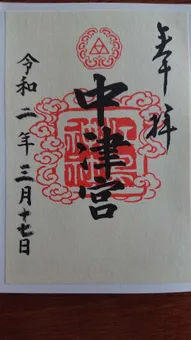 奉拝
中津宮
令和二年三月十七日